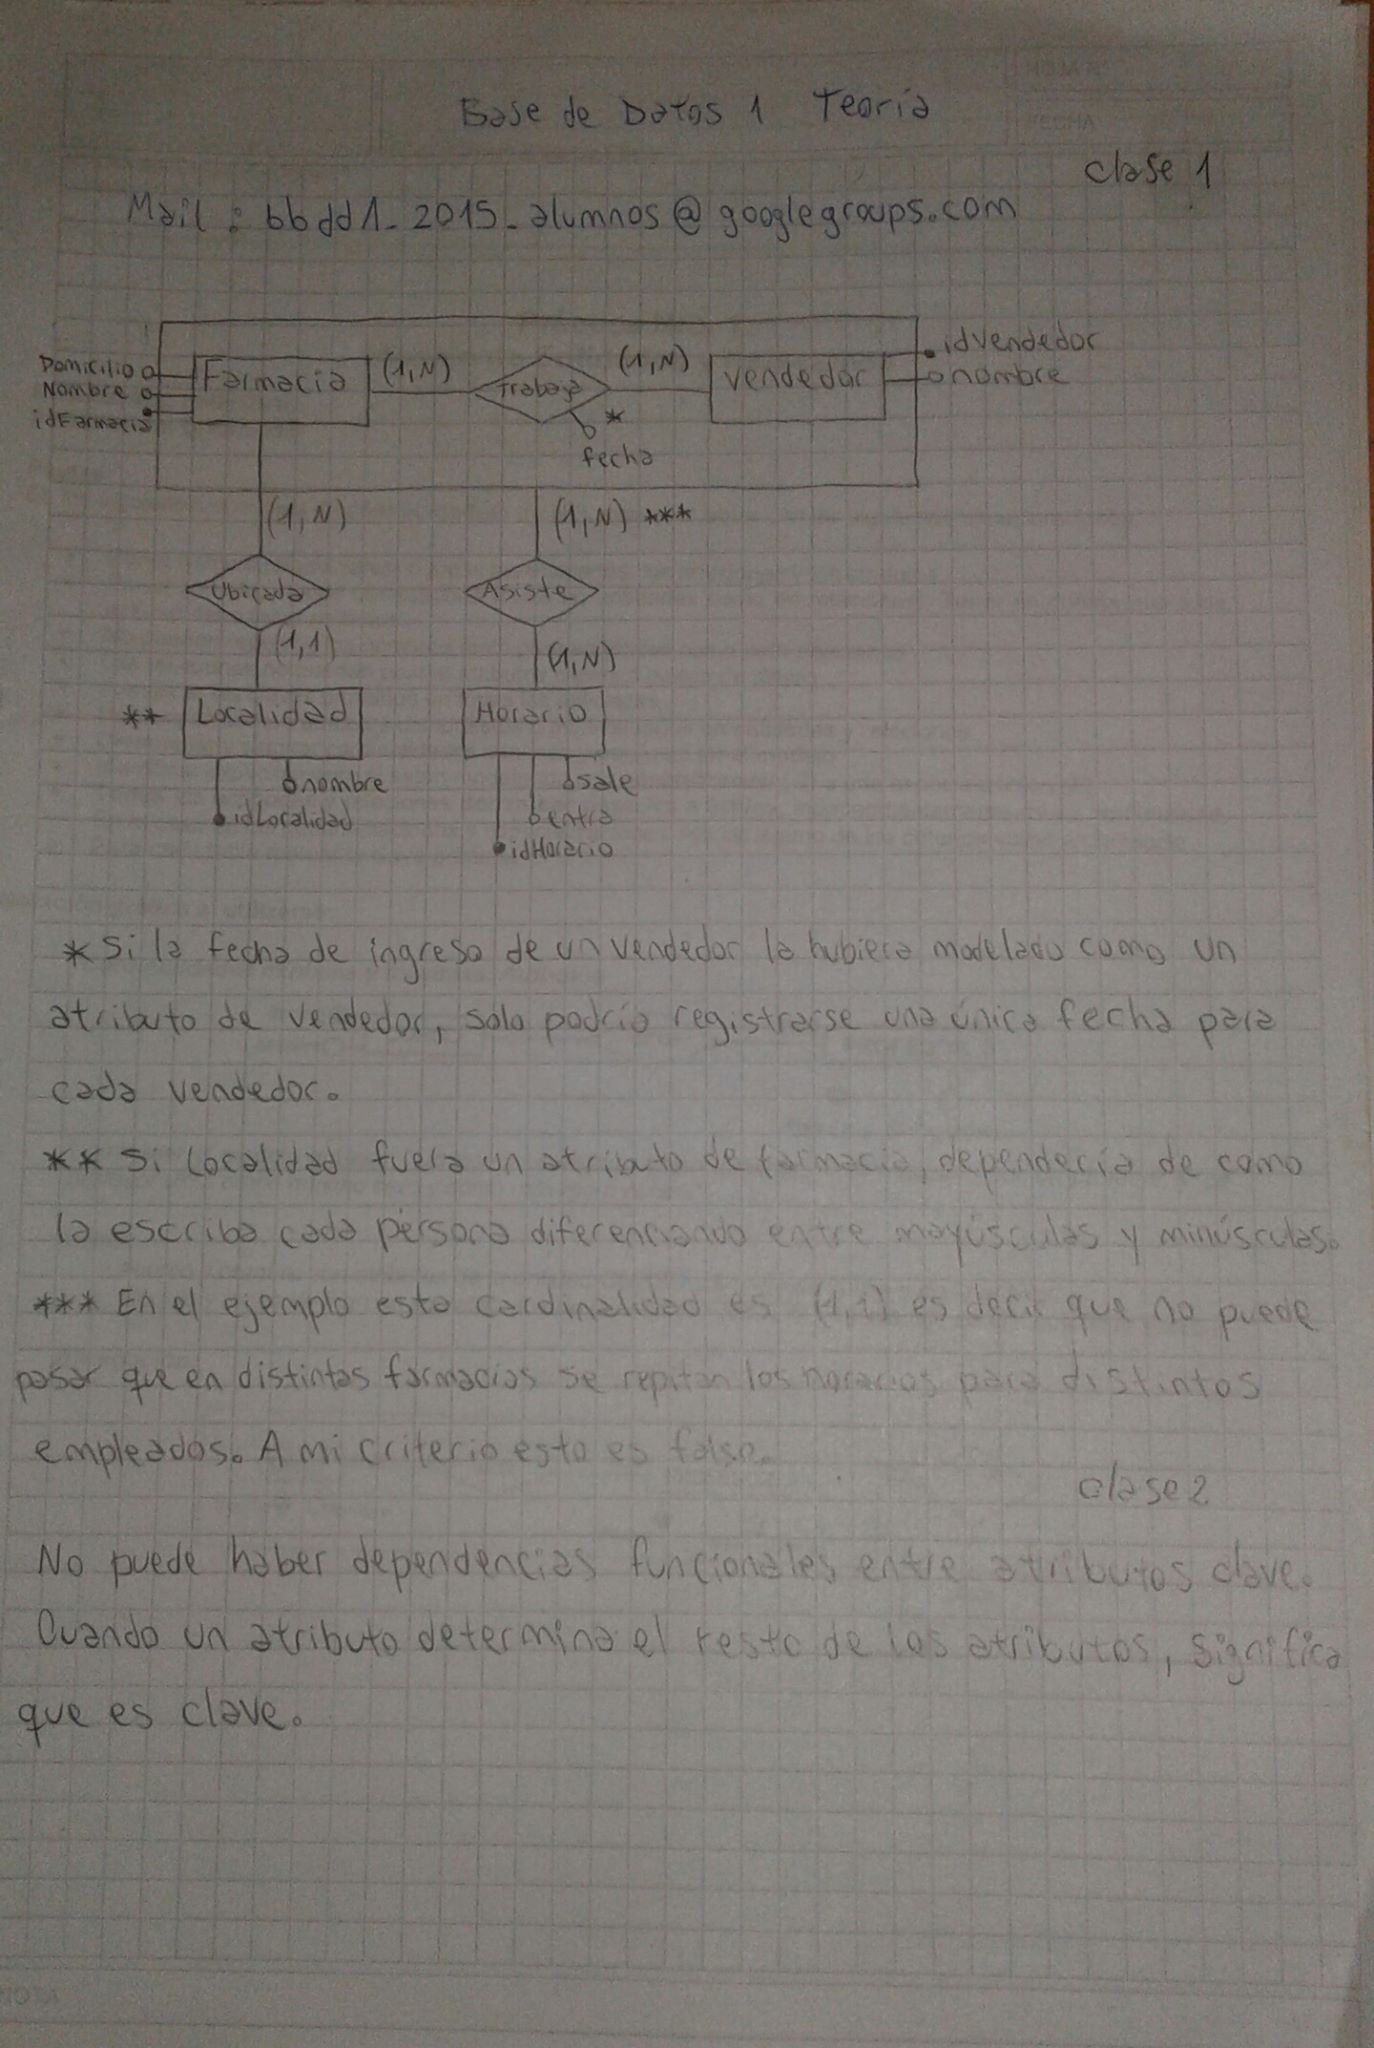 Base de Datos 1 Teoría
clase 1
Mail: bbdd1_2015_alumnos@googlegroups.com
Domicilio
Nombre
idFarmacia
Farmacia
(1,N)
Trabaja
(1,N)
Vendedor
idVendedor
nombre
*
fecha
(1,N)
(1,N) ***
Ubicada
Asiste
(1,1)
(1,N)
** Localidad
Horario
nombre
idLocalidad
sale
entra
idHorario
* Si la fecha de ingreso de un vendedor la hubiera modelado como un
atributo de vendedor, solo podría registrarse una única fecha para
cada vendedor.
** Si Localidad fuera un atributo de farmacia, dependería de como
la escriba cada persona diferenciando entre mayúsculas y minúsculas.
*** En el ejemplo esta cardinalidad es (1,1) es decir que no puede
pasar que en distintas farmacias se repitan los horarios para distintos
empleados. A mi criterio esto es falso.
clase 2
No puede haber dependencias funcionales entre atributos clave.
Cuando un atributo determina el resto de los atributos, significa
que es clave.